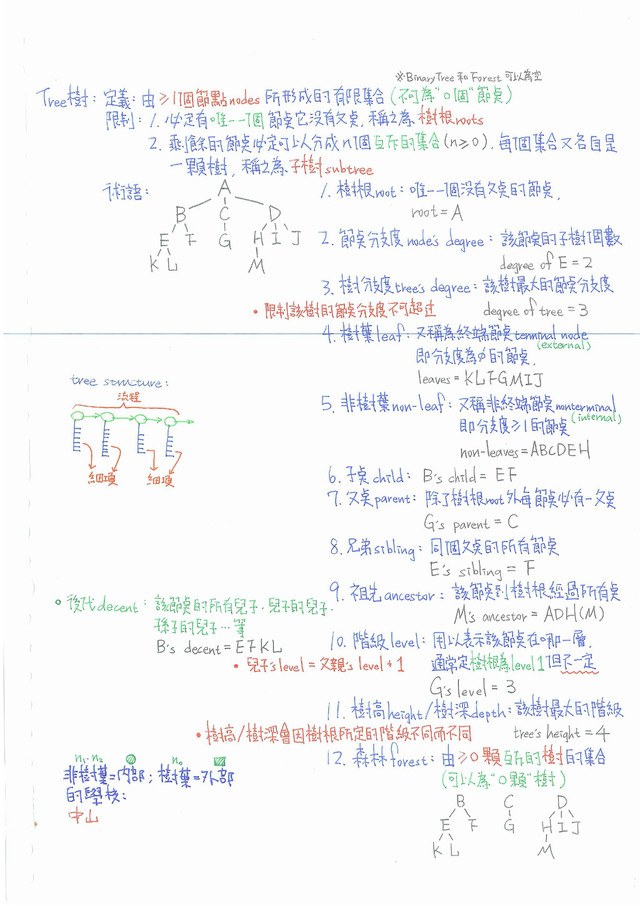 ※BinaryTree 和 Forest 可以為空
Tree樹：定義：由≥1個節點nodes所形成的有限集合(不可為"0個"節點)
限制：1. 必定有唯一一個節點它沒有父點，稱之為樹根roots
2. 剩餘的節點必定可以分成n個互斥的集合(n≥0)，每個集合又各自是
一顆樹，稱之為子樹subtree
術語：
A
B C D
E F G H I J
K L M
1. 樹根root：唯一一個沒有父點的節點，
root = A
2. 節點分支度node's degree：該節點的子樹個數
degree of E = 2
3. 樹分支度tree's degree：該樹最大的節點分支度
•限制該樹的節點分支度不可超过
degree of tree = 3
4. 樹葉leaf：又稱為終端節點terminal node
(external)
即分支度為0的節點，
leaves = KLFGMIJ
tree structure：
流程
細項 細項
5. 非樹葉non-leaf：又稱非終端節點nonterminal
(internal)
即分支度≥1的節點
non-leaves = ABCDEH
6. 子點child：B's child = EF
7. 父點parent：除了樹根root外每節點必有一父點
G's parent = C
8. 兄弟sibling：同個父點的所有節點
E's sibling = F
9. 祖先ancestor：該節點到樹根經過所有點
M's ancestor = ADH(M)
•後代decent：該節點的所有兒子、兒子的兒子、
孫子的兒子…等
B's decent = EFKL
10. 階級level：用以表示該節點在哪一層，
通常定樹根為level 1 但不一定
•兒子's level = 父親's level + 1
G's level = 3
11. 樹高height/樹深depth：該樹最大的階級
•樹高/樹深會因樹根所定的階級不同而不同
tree's height = 4
12. 森林forest：由≥0顆互斥的樹的集合
(可以為"0顆"樹)
B C D
E F G H I J
K L M
n₁、n₂ n₀
非樹葉=內部；樹葉=外部
的學校：
中山